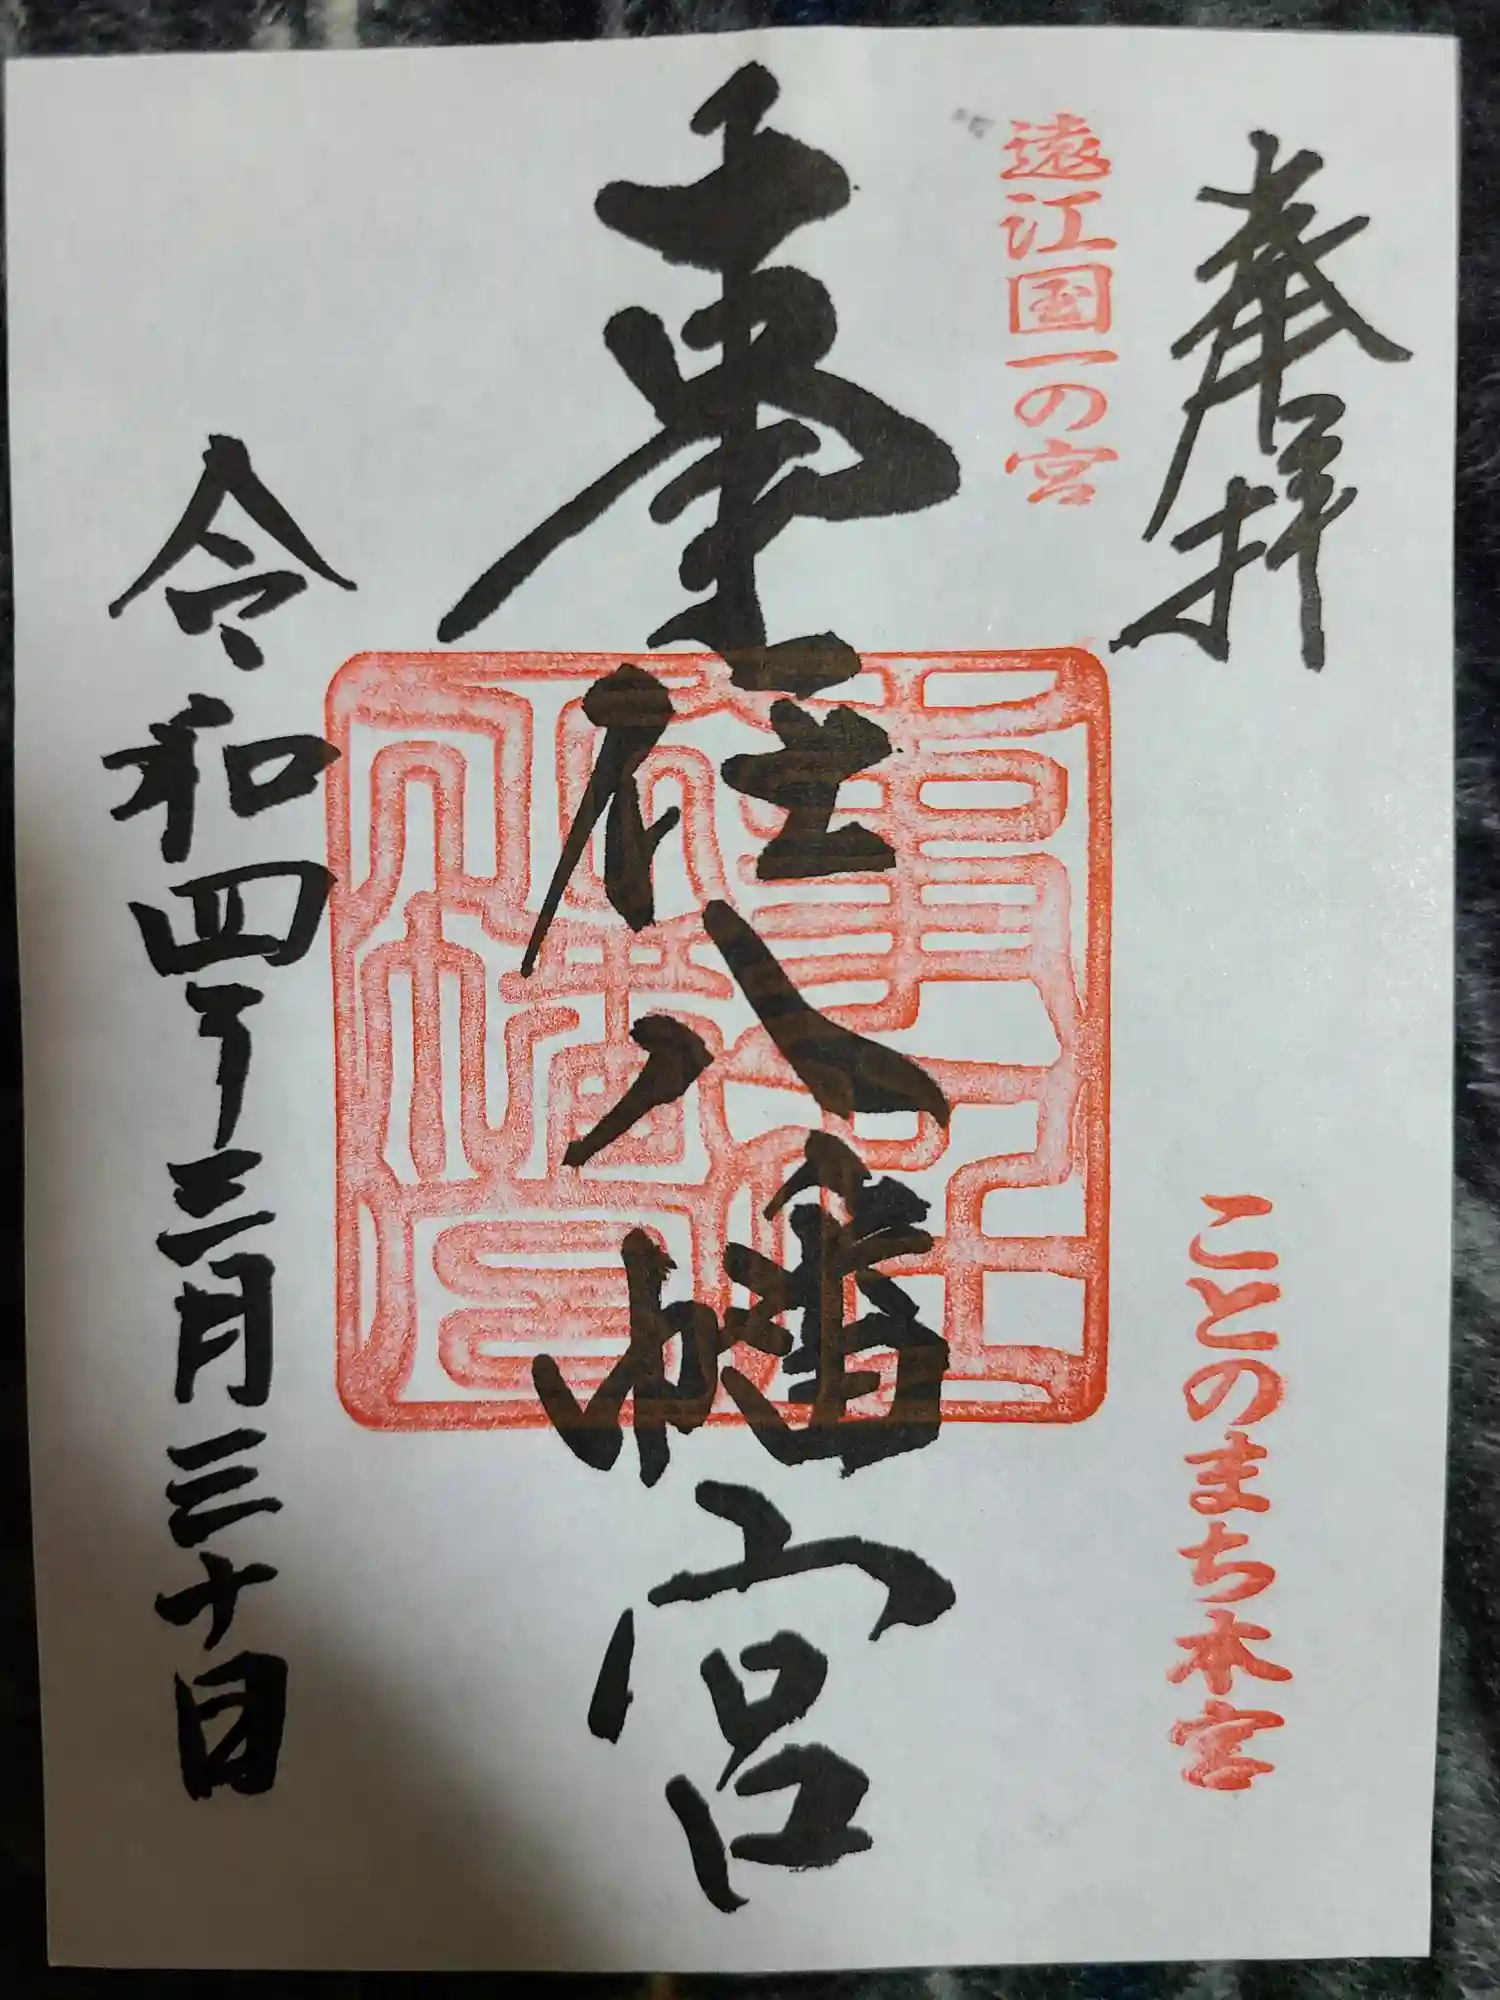 奉拝
ことのまち本宮
遠江国一の宮
事任八幡宮
事任八幡宮
令和四年三月三十日